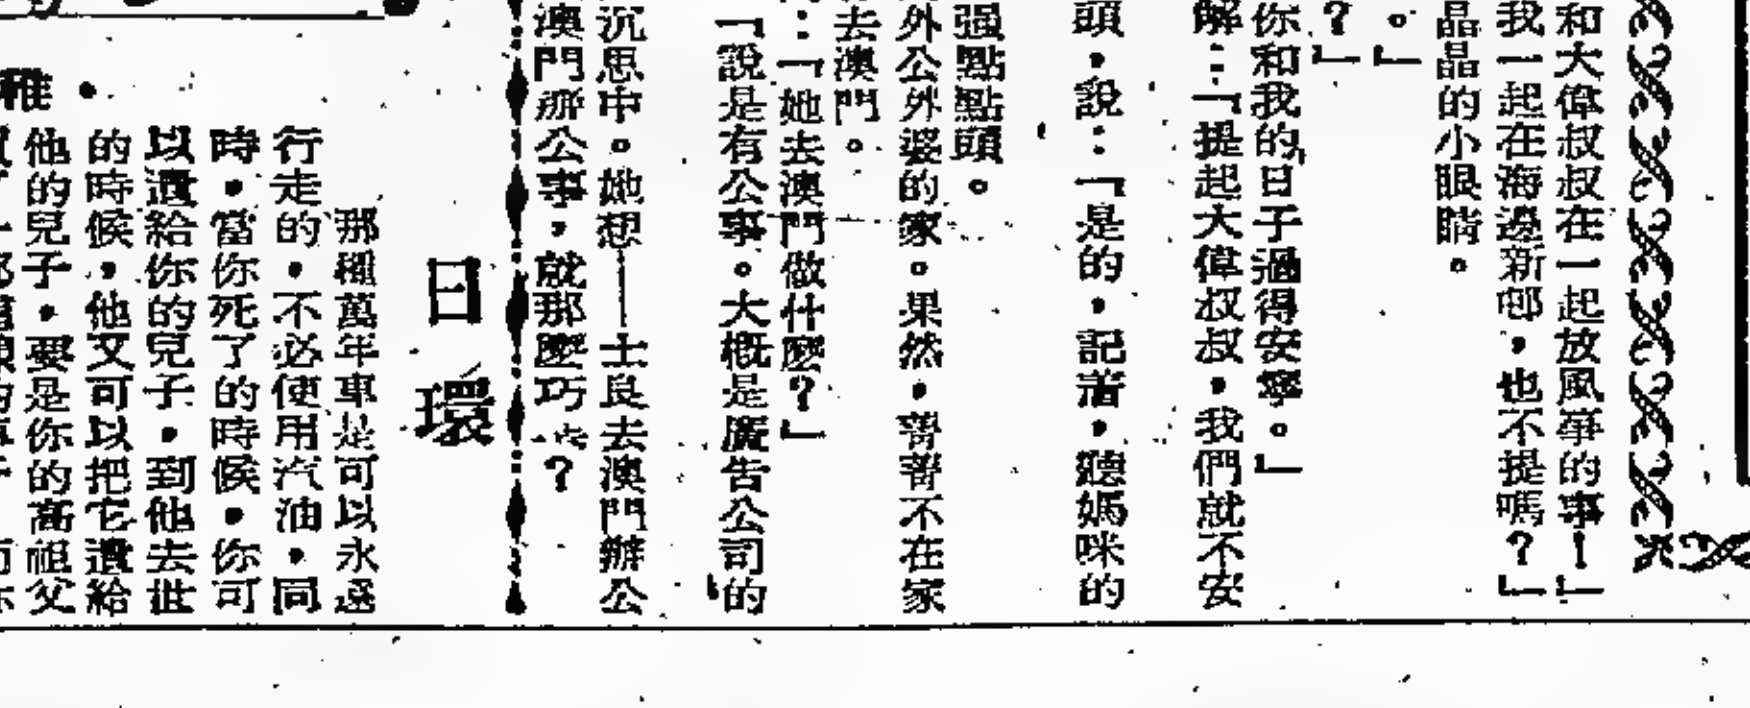 和大偉叔叔在一起放風箏的事！」
我一起在海邊新邨，也不提嗎？」
晶晶的小眼睛。
。」
？」
你和我的日子過得安寧。」
解：「提起大偉叔叔，我們就不安
頭，說：「是的，記着，聽媽咪的
强點點頭。
外公外婆的家。果然，菁菁不在家
去澳門。
：「她去澳門做什麼？」
「說是有公事。大概是廣告公司的
沉思中。她想——士良去澳門辦公
澳門辦公事，就那麼巧？
日環
那種萬年車是可以永遠
行走的，不必使用汽油，同
時，當你死了的時候，你可
以遺給你的兒子，到他去世
的時候，他又可以把它遺給
他的兒子，要是你的高祖父
雅．